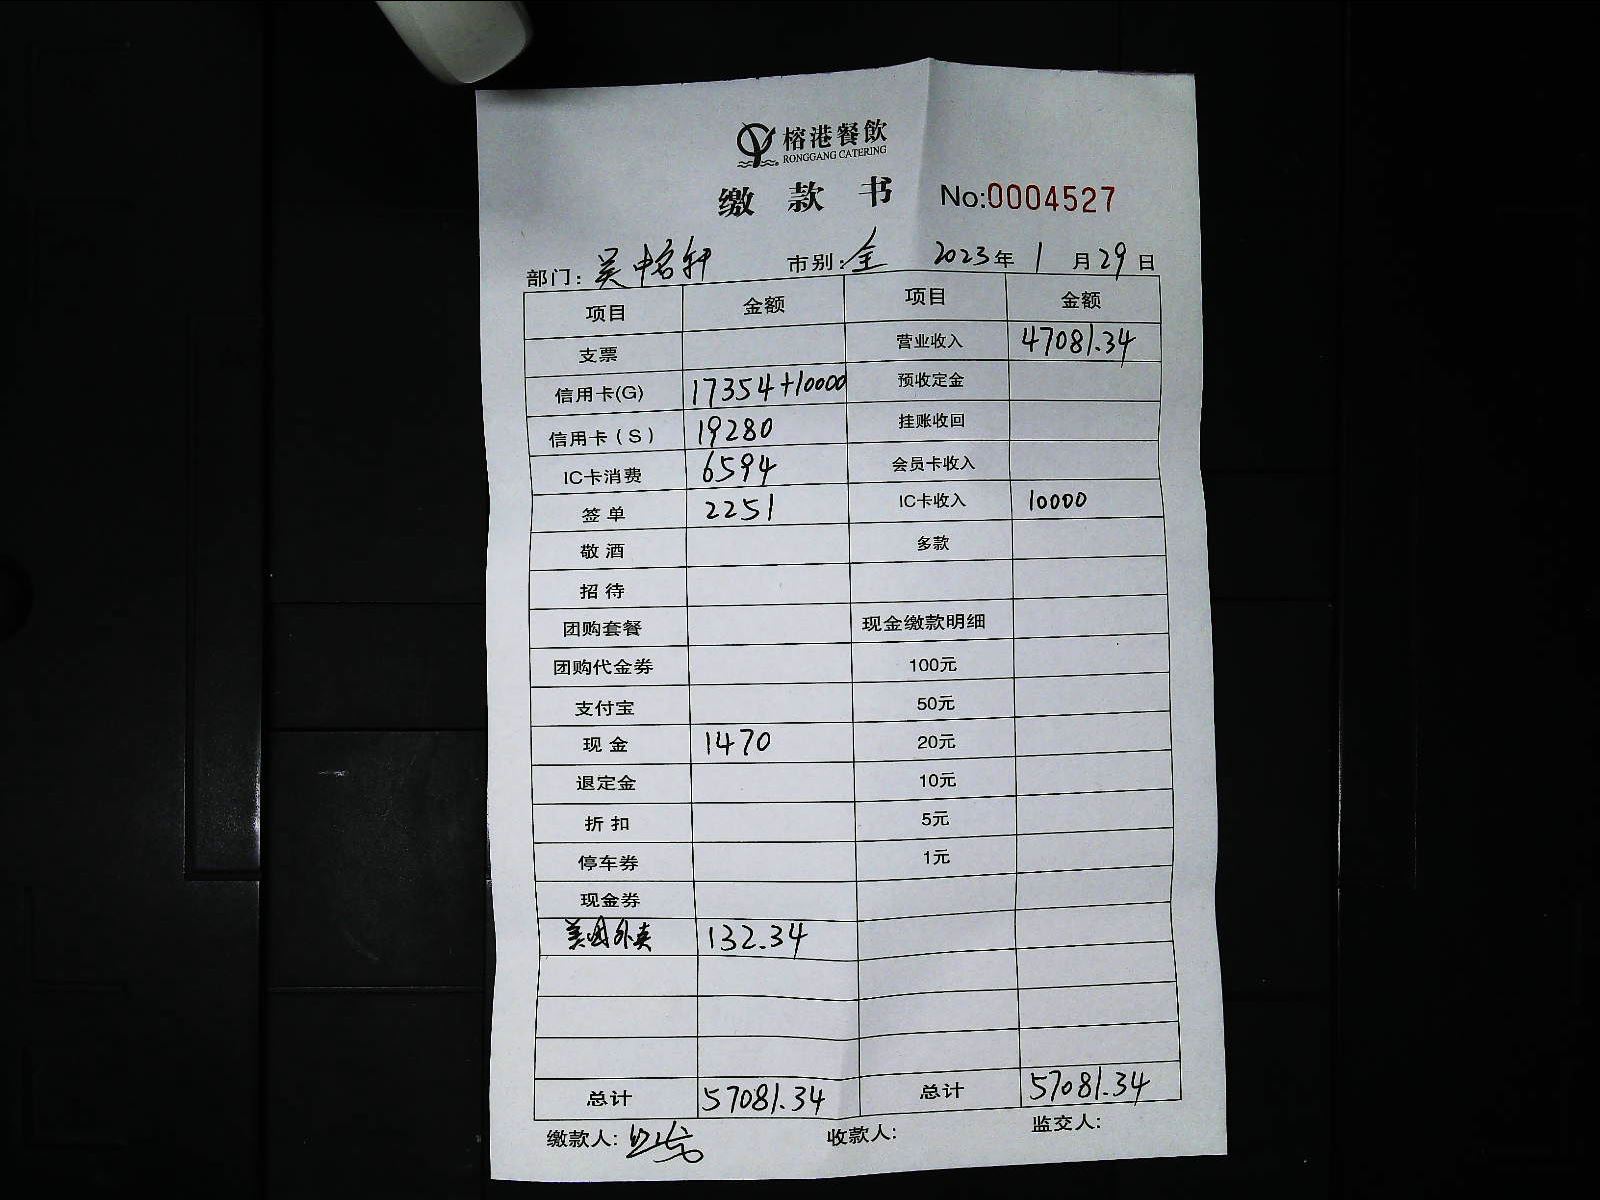 榕港餐飲
RONGGANG CATERING
缴 款 书 No:0004527
部门: 吴中名轩 市别: 全 2023年 1 月 29 日
项目 金额 项目 金额
支票 营业收入 47081.34
信用卡(G) 17354+10000 预收定金
信用卡（S） 19280 挂账收回
IC卡消费 6594 会员卡收入
签 单 2251 IC卡收入 10000
敬 酒 多款
招 待
团购套餐 现金缴款明细
团购代金券 100元
支付宝 50元
现 金 1470 20元
退定金 10元
折 扣 5元
停车券 1元
现金券
美团外卖 132.34
总计 57081.34 总计 57081.34
缴款人: 收款人: 监交人: